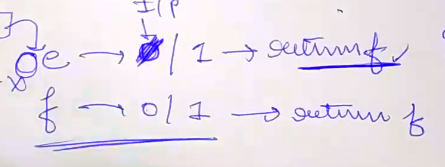 I/P
e → 0/1 → return f ✓
f → 0/1 → return f